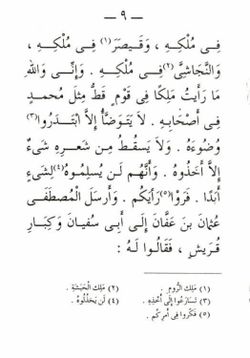 — ٩ —
فِى مُلْكِهِ ، وَقَيْصَرَ (١) فِى مُلْكِهِ ،
وَالنَّجَاشِىَّ (٢) فِى مُلْكِهِ . وَإِنِّى وَاللهِ
مَا رَأَيْتُ مَلِكًا فِى قَوْمٍ قَطُّ مِثْلَ مُحَمدٍ
فِى أَصْحَابِهِ . لاَ يَتَوَضَّأُ إِلاَّ ابْتَدَرُوا (٣)
وُضُوءَهُ . وَلاَ يَسقُطُ مِن شَعرِهِ شَىءٌ
إِلاَّ أَخَذُوهُ . وَأَنَّهُم لَن يُسلِمُوهُ (٤) لِشَىءٍ
أَبَدًا . فَرَوْا (٥) رَأيَكُم . وَأَرسَلَ الْمُصطَفَى
عُثمَانَ بنَ عَفَّانَ إِلَى أَبِى سُفيَانَ وَكِبَارِ
قُرَيشٍ ، فَقَالُوا لَهُ :
(١) مَلِكَ الرُّومِ . (٢) مَلِكَ الْحَبَشَةِ .
(٣) تَسَارَعُوا إِلَى أَخْذِهِ . (٤) لَن يَخْذُلُوهُ .
(٥) فَكِّرُوا فِى أَمرِكُم .